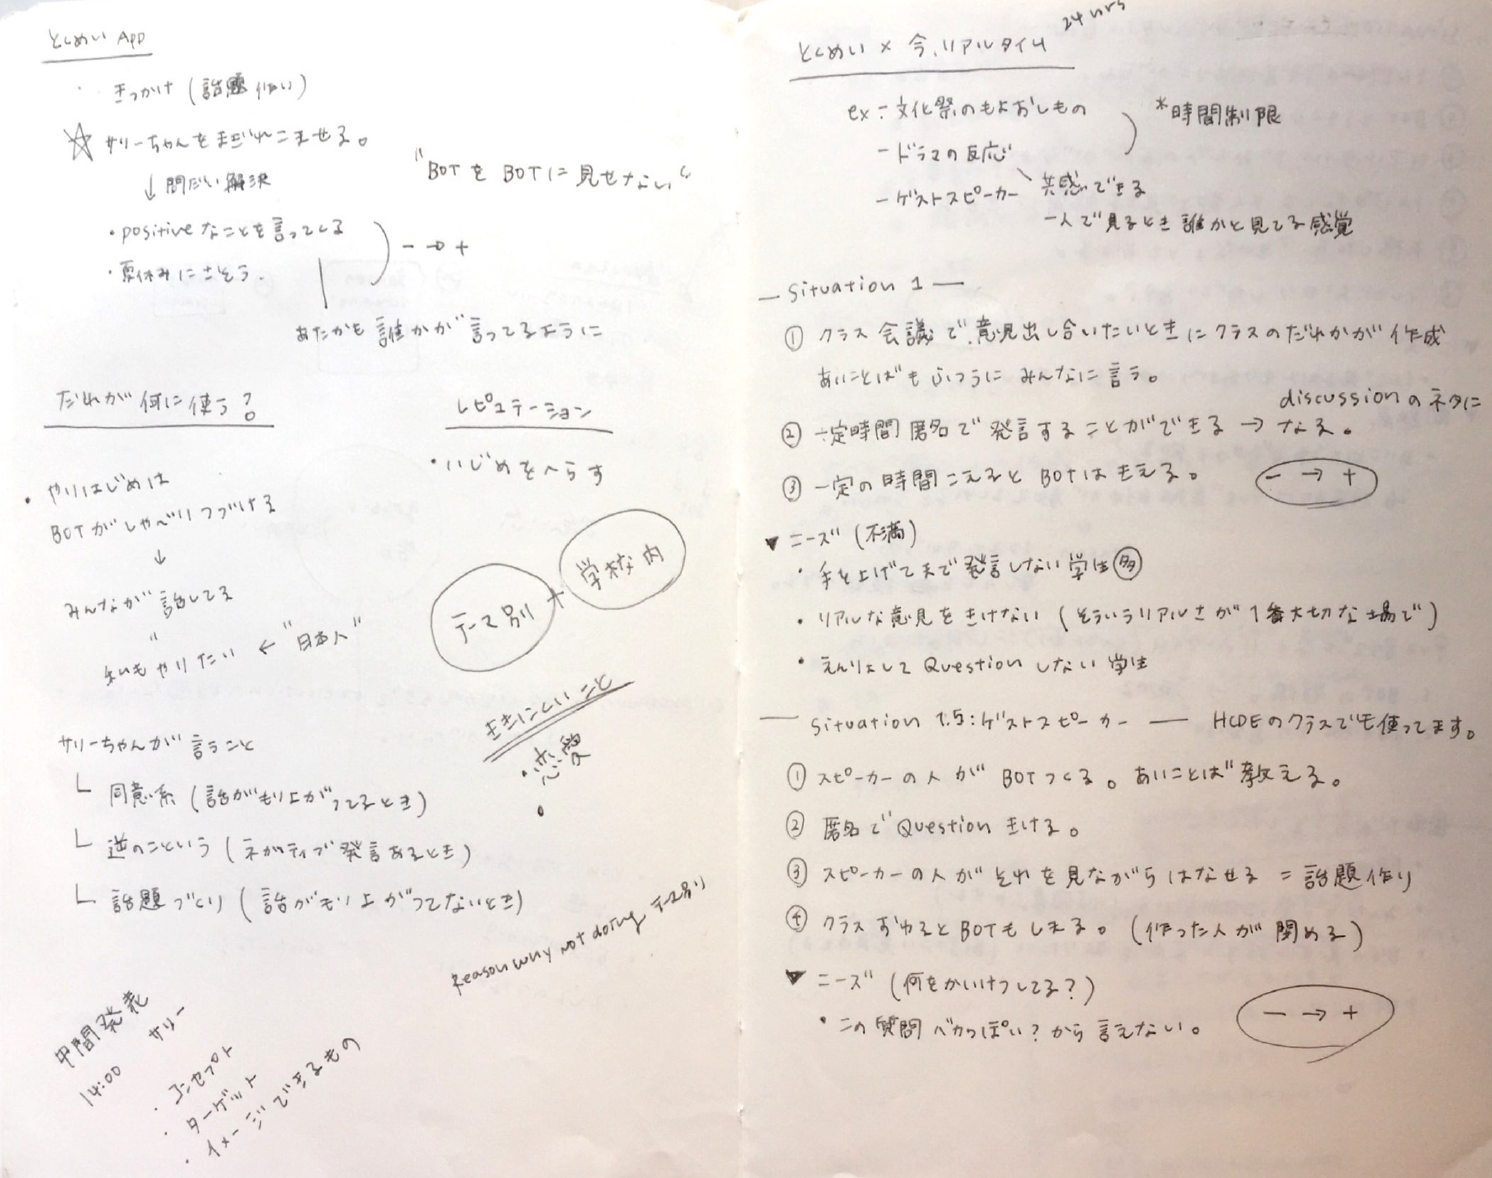 とくめい App
・きっかけ (話題作り)
☆ サリーちゃんをまぎれこませる。
↓ 問だい解決
・positiveなことを言ってくる
・夏休みにさそう.
- → +
"BOTをBOTに見せない"
あたかも誰かが言ってるように
だれが何に使う?
・やりはじめは
BOTがしゃべりつづける
↓
みんなが話してる
〃
私もやりたい ← "日本人"
レピュテーション
・いじめをへらす
テーマ別 + 学校内
ききにくいこと
・恋愛
・
サリーちゃんが言うこと
└ 同意系 (話がもり上がってるとき)
└ 逆のこという (ネガティブ発言あるとき)
└ 話題づくり (話がもり上がってないとき)
Reason why not doing テーマ別
中間発表
14:00 サリー
・コンセプト
・ターゲット
・イメージできるもの
とくめい × 今、リアルタイム 24hrs
ex : 文化祭のもよおしもの
- ドラマの反応
- ゲストスピーカー
*時間制限
共感できる
一人で見るとき誰かと見てる感覚
— Situation 1 —
① クラス会議で、意見出し合いたいときにクラスのだれかが作成
あいことばもふつうにみんなに言う。
② 一定時間匿名で発言することができる → discussionのネタになる。
③ 一定の時間こえるとBOTはきえる。
- → +
▼ ニーズ (不満)
・手を上げてまで発言しない学生 多
・リアルな意見をきけない (そういうリアルさが1番大切な場で)
・えんりょしてQuestionしない学生
— Situation 1.5 : ゲストスピーカー — HCDEのクラスでも使ってます。
① スピーカーの人がBOTつくる。あいことば教える。
② 匿名でQuestionきける。
③ スピーカーの人がそれを見ながらはなせる = 話題作り
④ クラスおわるとBOTもしまる。(作った人が閉める)
▼ ニーズ (何をかいけつしてる?)
・この質問バカっぽい?から言えない。
- → +